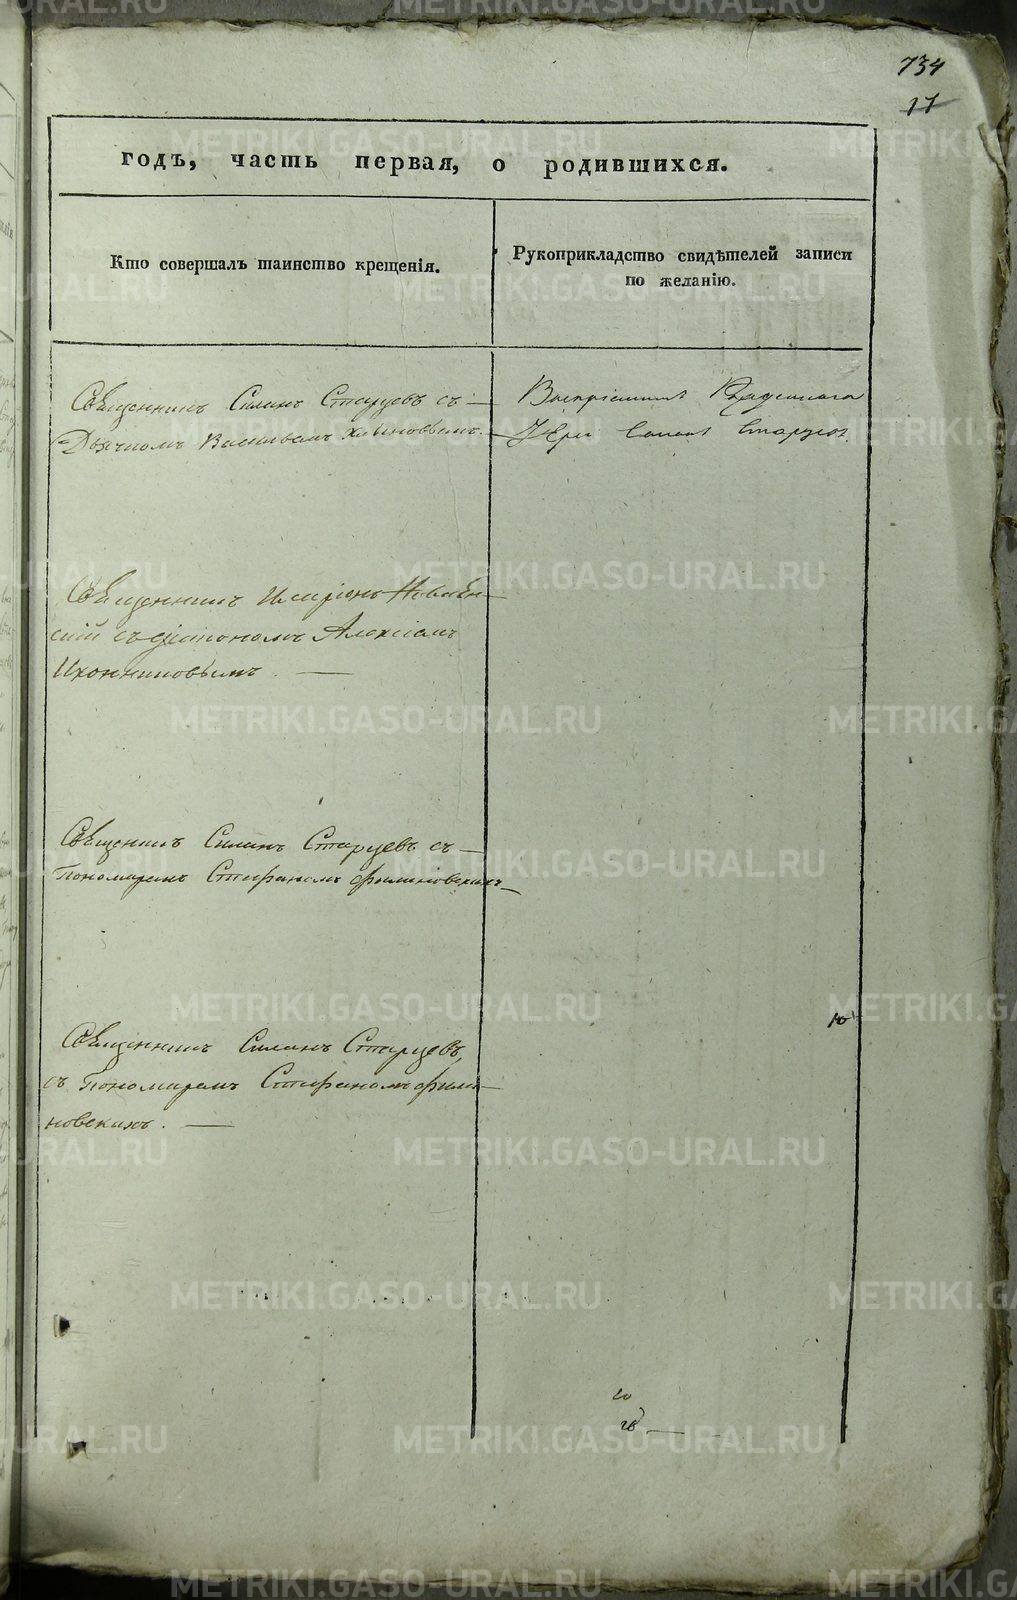 734
17
годъ, часть первая, о родившихся.
Кто совершалъ таинство крещенія.
Рукоприкладство свидѣтелей записи
по желанію.
Священникъ Силанъ Старцевъ съ
Дьячкомъ Васильемъ Хлыновымъ.
Іерей Старцевъ
Священникъ Иларіонъ
скій съ діакономъ Алексіемъ
Иконниковымъ.
Священникъ Силанъ Старцевъ съ
Пономаремъ Стефаномъ Филиновскихъ
Священникъ Силанъ Старцевъ,
съ Пономаремъ Стефаномъ Фили
новскихъ.
METRIKI.GASO-URAL.RU